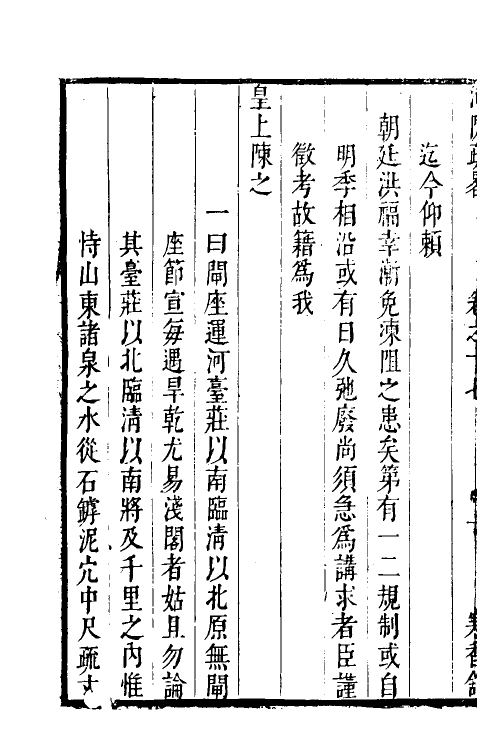 迄今仰賴
朝廷洪福幸漸免湅阻之患矣第有一二規制或自
明季相沿或有日久弛廢尚須急為講求者臣謹
徵考故籍爲我
皇上陳之
一曰閘座運河臺莊以南臨清以北原無閘
座節宣每遇旱乾尤易淺閣者姑且勿論
其臺莊以北臨清以南將及千里之內惟
恃山東諸泉之水從石罅泥穴中尺疏丈